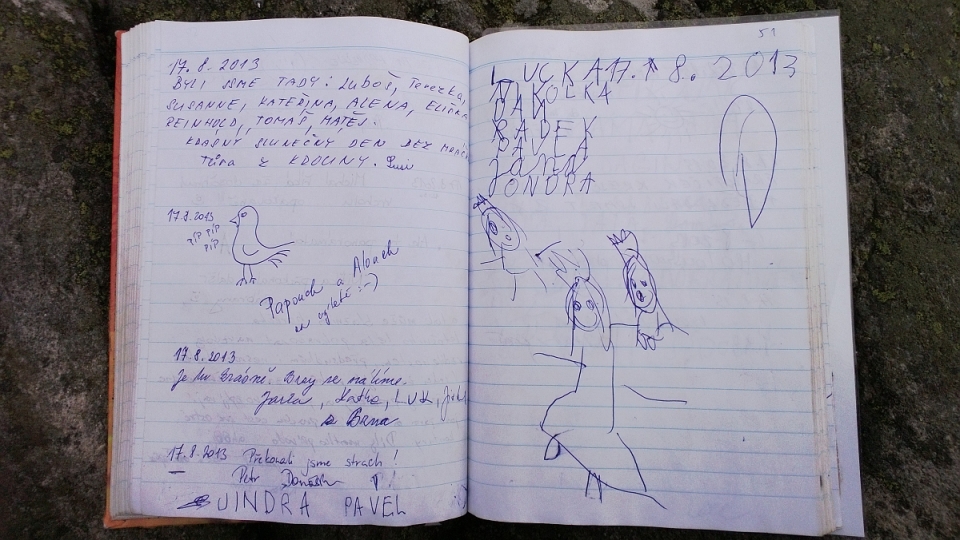 17.8.2013
BYLI JSME TADY: Luboš, Terezka,
SUSANNE, KATEŘINA, ALENA, ELIŠKA
REINHOLD, TOMÁŠ, MATĚJ.
KRÁSNÝ SLUNEČNÝ DEN BEZ
Z KDOLINY.
17.8.2013
PÍP PÍP
PÍP
Papouch a
na výletě :-)
17.8.2013
Je tu krásně. Brzy se vrátíme.
Katka, LUK,
z Brna
17.8.2013 Překonali jsme strach!
Petr
JINDRA PAVEL
51
LUCKA 17. 8. 2013
NIKOLKA
DAN
RADEK
PAVEL
Jana
JONDRA